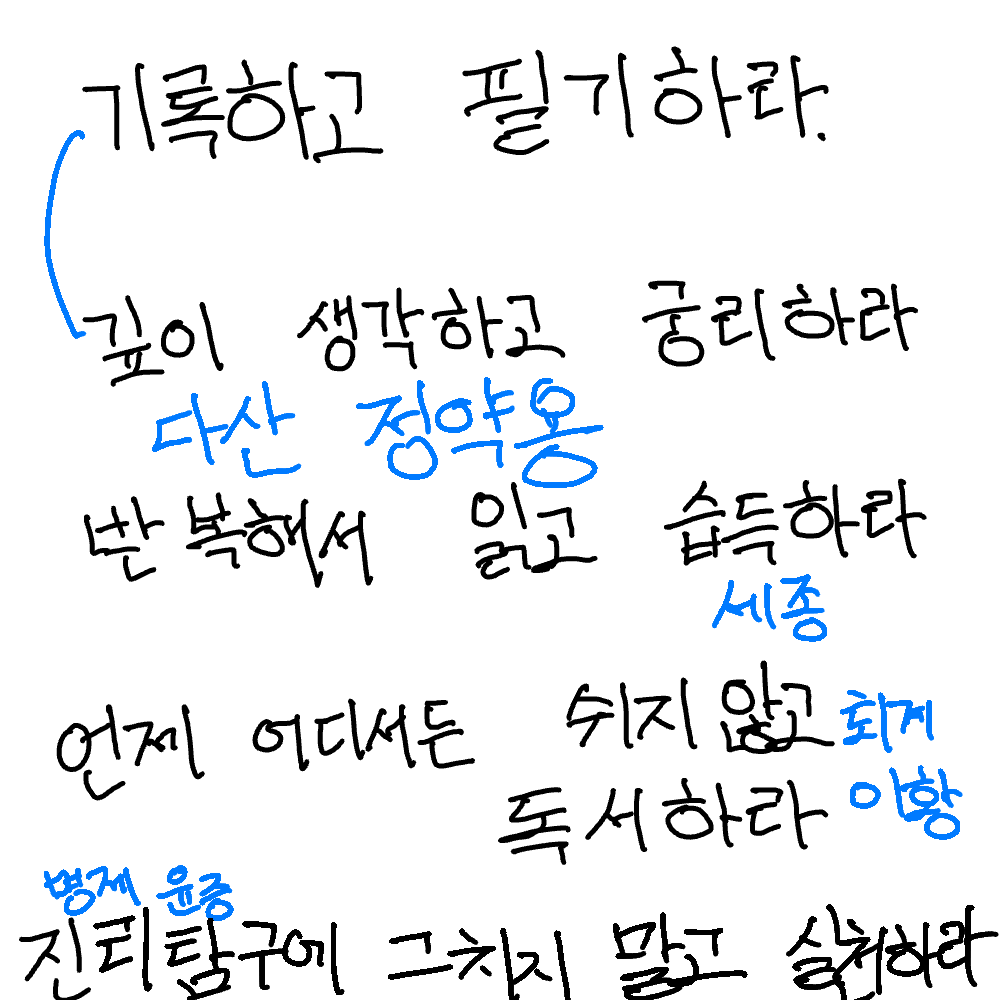 기록하고 필기하라.
깊이 생각하고 궁리하라
다산 정약용
반복해서 읽고 습득하라
세종
언제 어디서든 쉬지 않고 퇴계
독서하라 이황
명제 윤증
진리탐구에 그치지 말고 실천하라